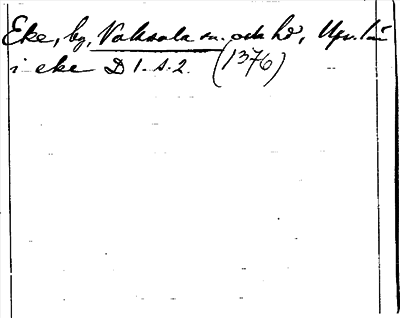 Eke, by, Vaksala sn. och hd, Upps. län
i eke D 1. s. 2. (1376)